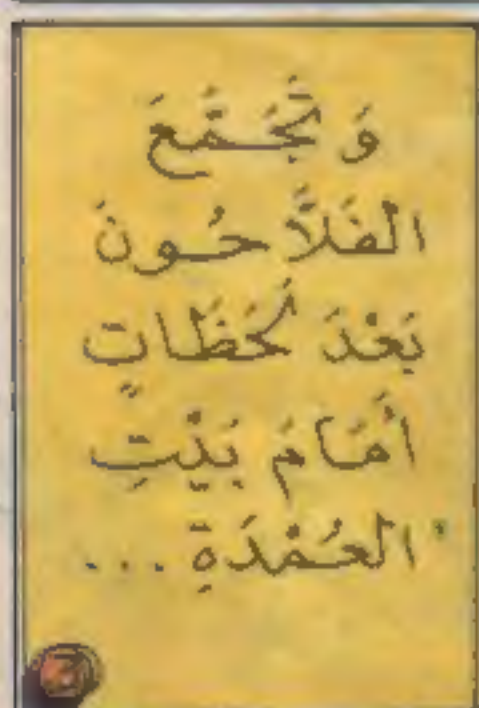 وَتَجَمَّعَ
الفَلاَّحُونَ
بَعْدَ لَحَظَاتٍ
أَمَامَ بَيْتِ
العُمْدَةِ ...